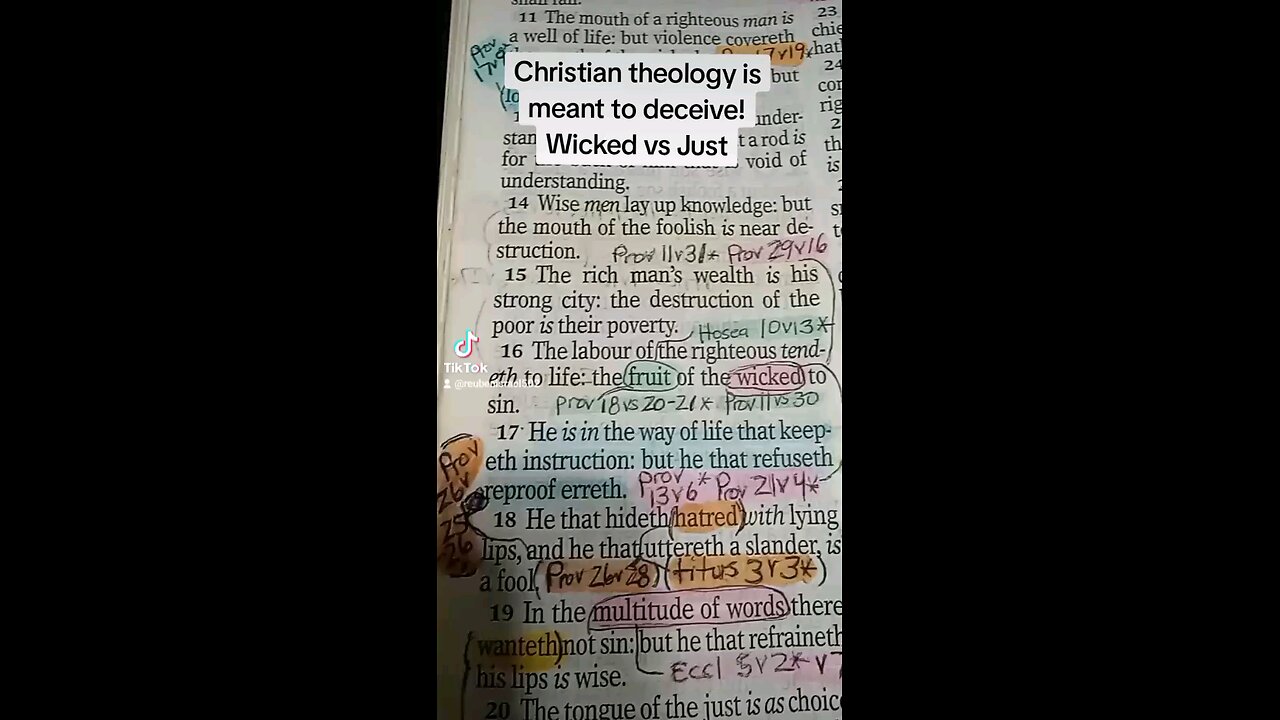 shall fall.
11 The mouth of a righteous man is
a well of life: but violence covereth
Prov
17v9
7v19*
but
(lo
Christian theology is
meant to deceive!
Wicked vs Just
under-
stan
t a rod is
for
void of
understanding.
14 Wise men lay up knowledge: but
the mouth of the foolish is near de-
struction. Prov 11v31* Prov 29v16
15 The rich man's wealth is his
strong city: the destruction of the
poor is their poverty. Hosea 10v13*
16 The labour of the righteous tend-
eth to life: the fruit of the wicked to
sin. Prov 18vs20-21* Prov 11vs30
17 He is in the way of life that keep-
eth instruction: but he that refuseth
reproof erreth. Prov 13v6* Prov 21v4*
Prov
26v
25
26
18 He that hideth hatred with lying
lips, and he that uttereth a slander, is
a fool. (Prov 26v28) (titus 3v3*)
19 In the multitude of words there
wanteth not sin: but he that refraineth
his lips is wise. Eccl 5v2* v7
20 The tongue of the just is as choic
23
chie
hat
24
con
rig
2
th
is
TikTok